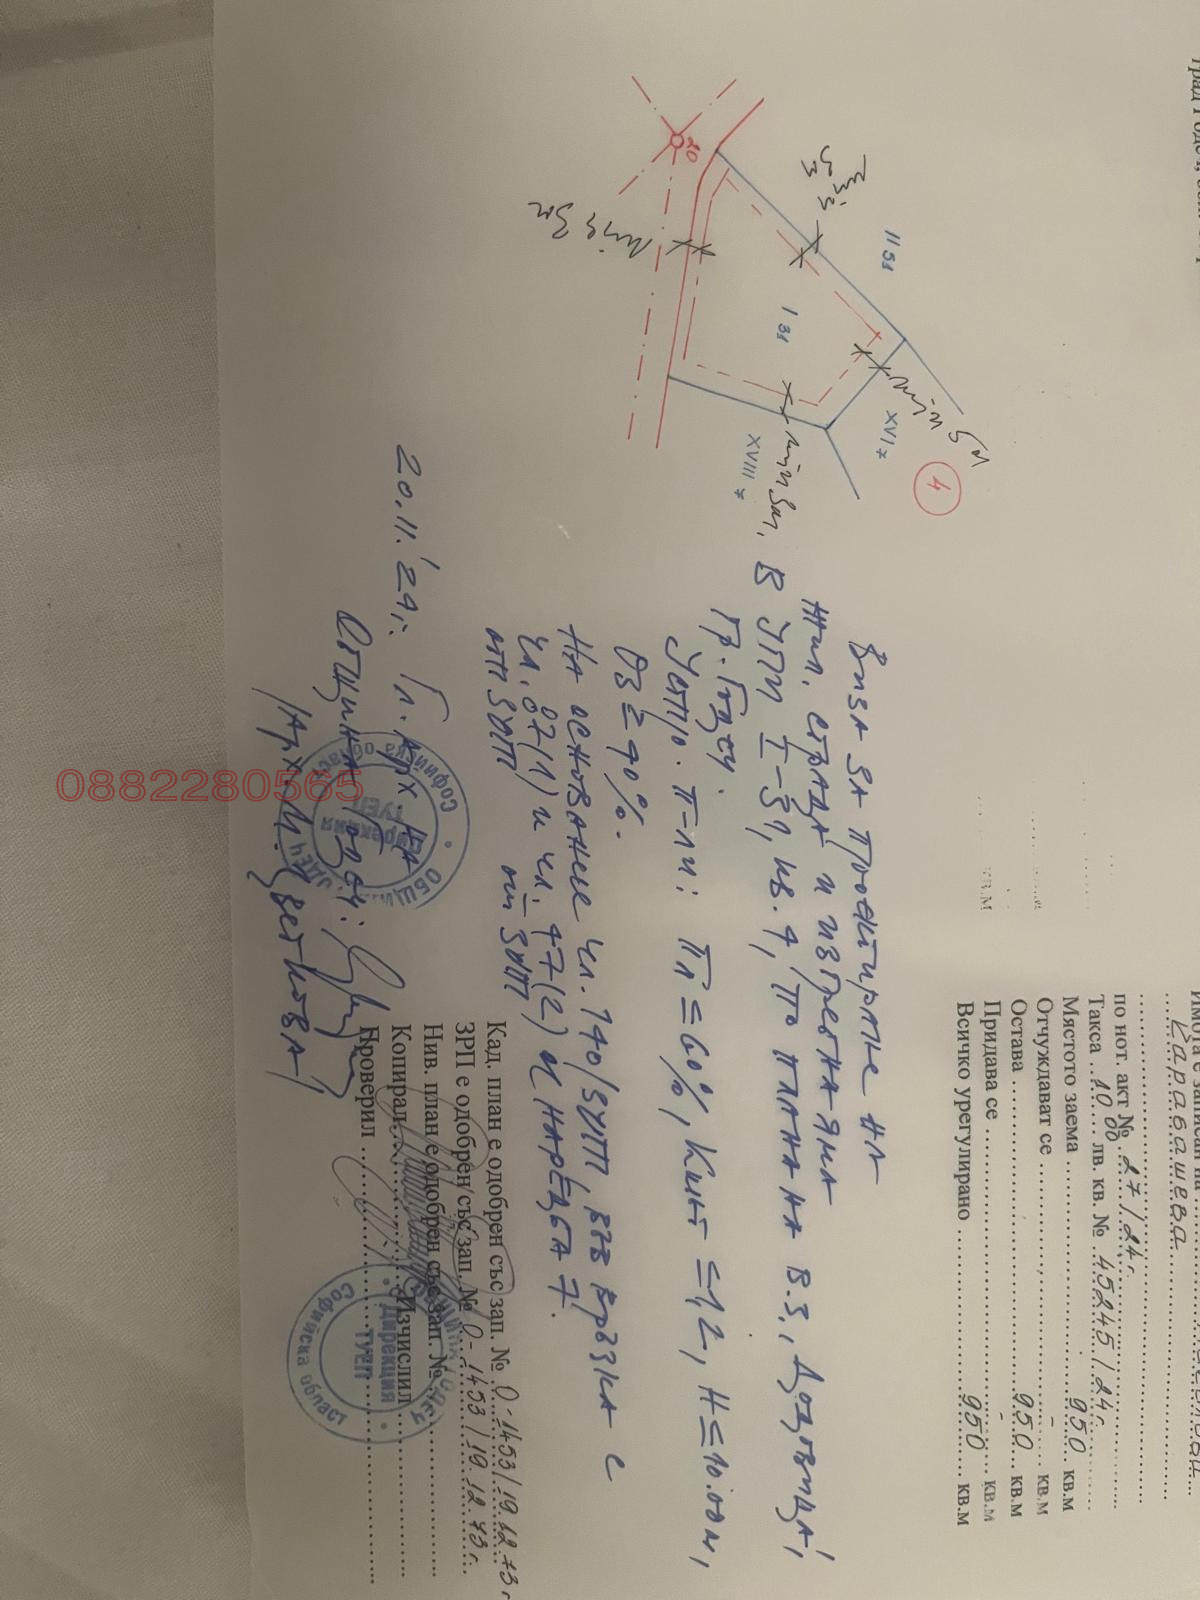 Карабашева
по нот. акт № 27/24 г.
Такса 10.00 лв. кв. № 45245/24 г.
Мястото заема 950 кв.м
Отчуждават се - кв.м
Остава 950 кв.м
Придава се - кв.м
Всичко урегулирано 950 кв.м
4
II 31
I 31
XVI 7
XVIII 7
20
5 м
мин 3 м
мин 3 м,
Виза за проектиране на
жил. сграда и изгребна яма
в УПИ I-31, кв. 4, по плана на в.з.
гр. Годеч.
Устр. п-ли: Пл = 60%, Кинт = 1,2, H = 10.00м,
ОЗ = 40%.
На основание чл. 140/ЗУТ, във връзка с
чл. 87(1) и чл. 47(2) и Наредба 7.
от ЗУТ от ЗУТ
20.11.24г. Гл. арх. на
Община Годеч:
/арх. М. Цветкова/
Кад. план е одобрен със зап. № 0-1453/19.12.73 г.
ЗРП е одобрен със зап. № 0-1453/19.12.73 г.
Нив. план е одобрен със зап. №
Копирал Изчислил
Проверил
ОБЩИНА ГОДЕЧ
Дирекция
ТУЕП
Софийска област
ОБЩИНА ГОДЕЧ
Дирекция
ТУЕП
Софийска област
0882280565